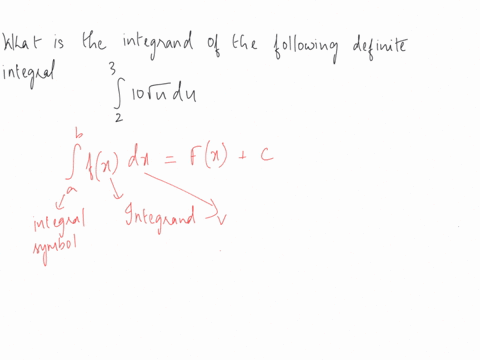 What is the integrand of the following definite
integral
∫₂³ 10√u du
∫ₐᵇ f(x) dx = F(x) + C
integral Integrand V
symbol